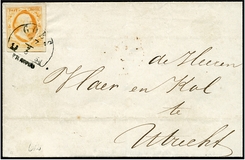 de Heeren
Vlaer en Kol
te
Utrecht